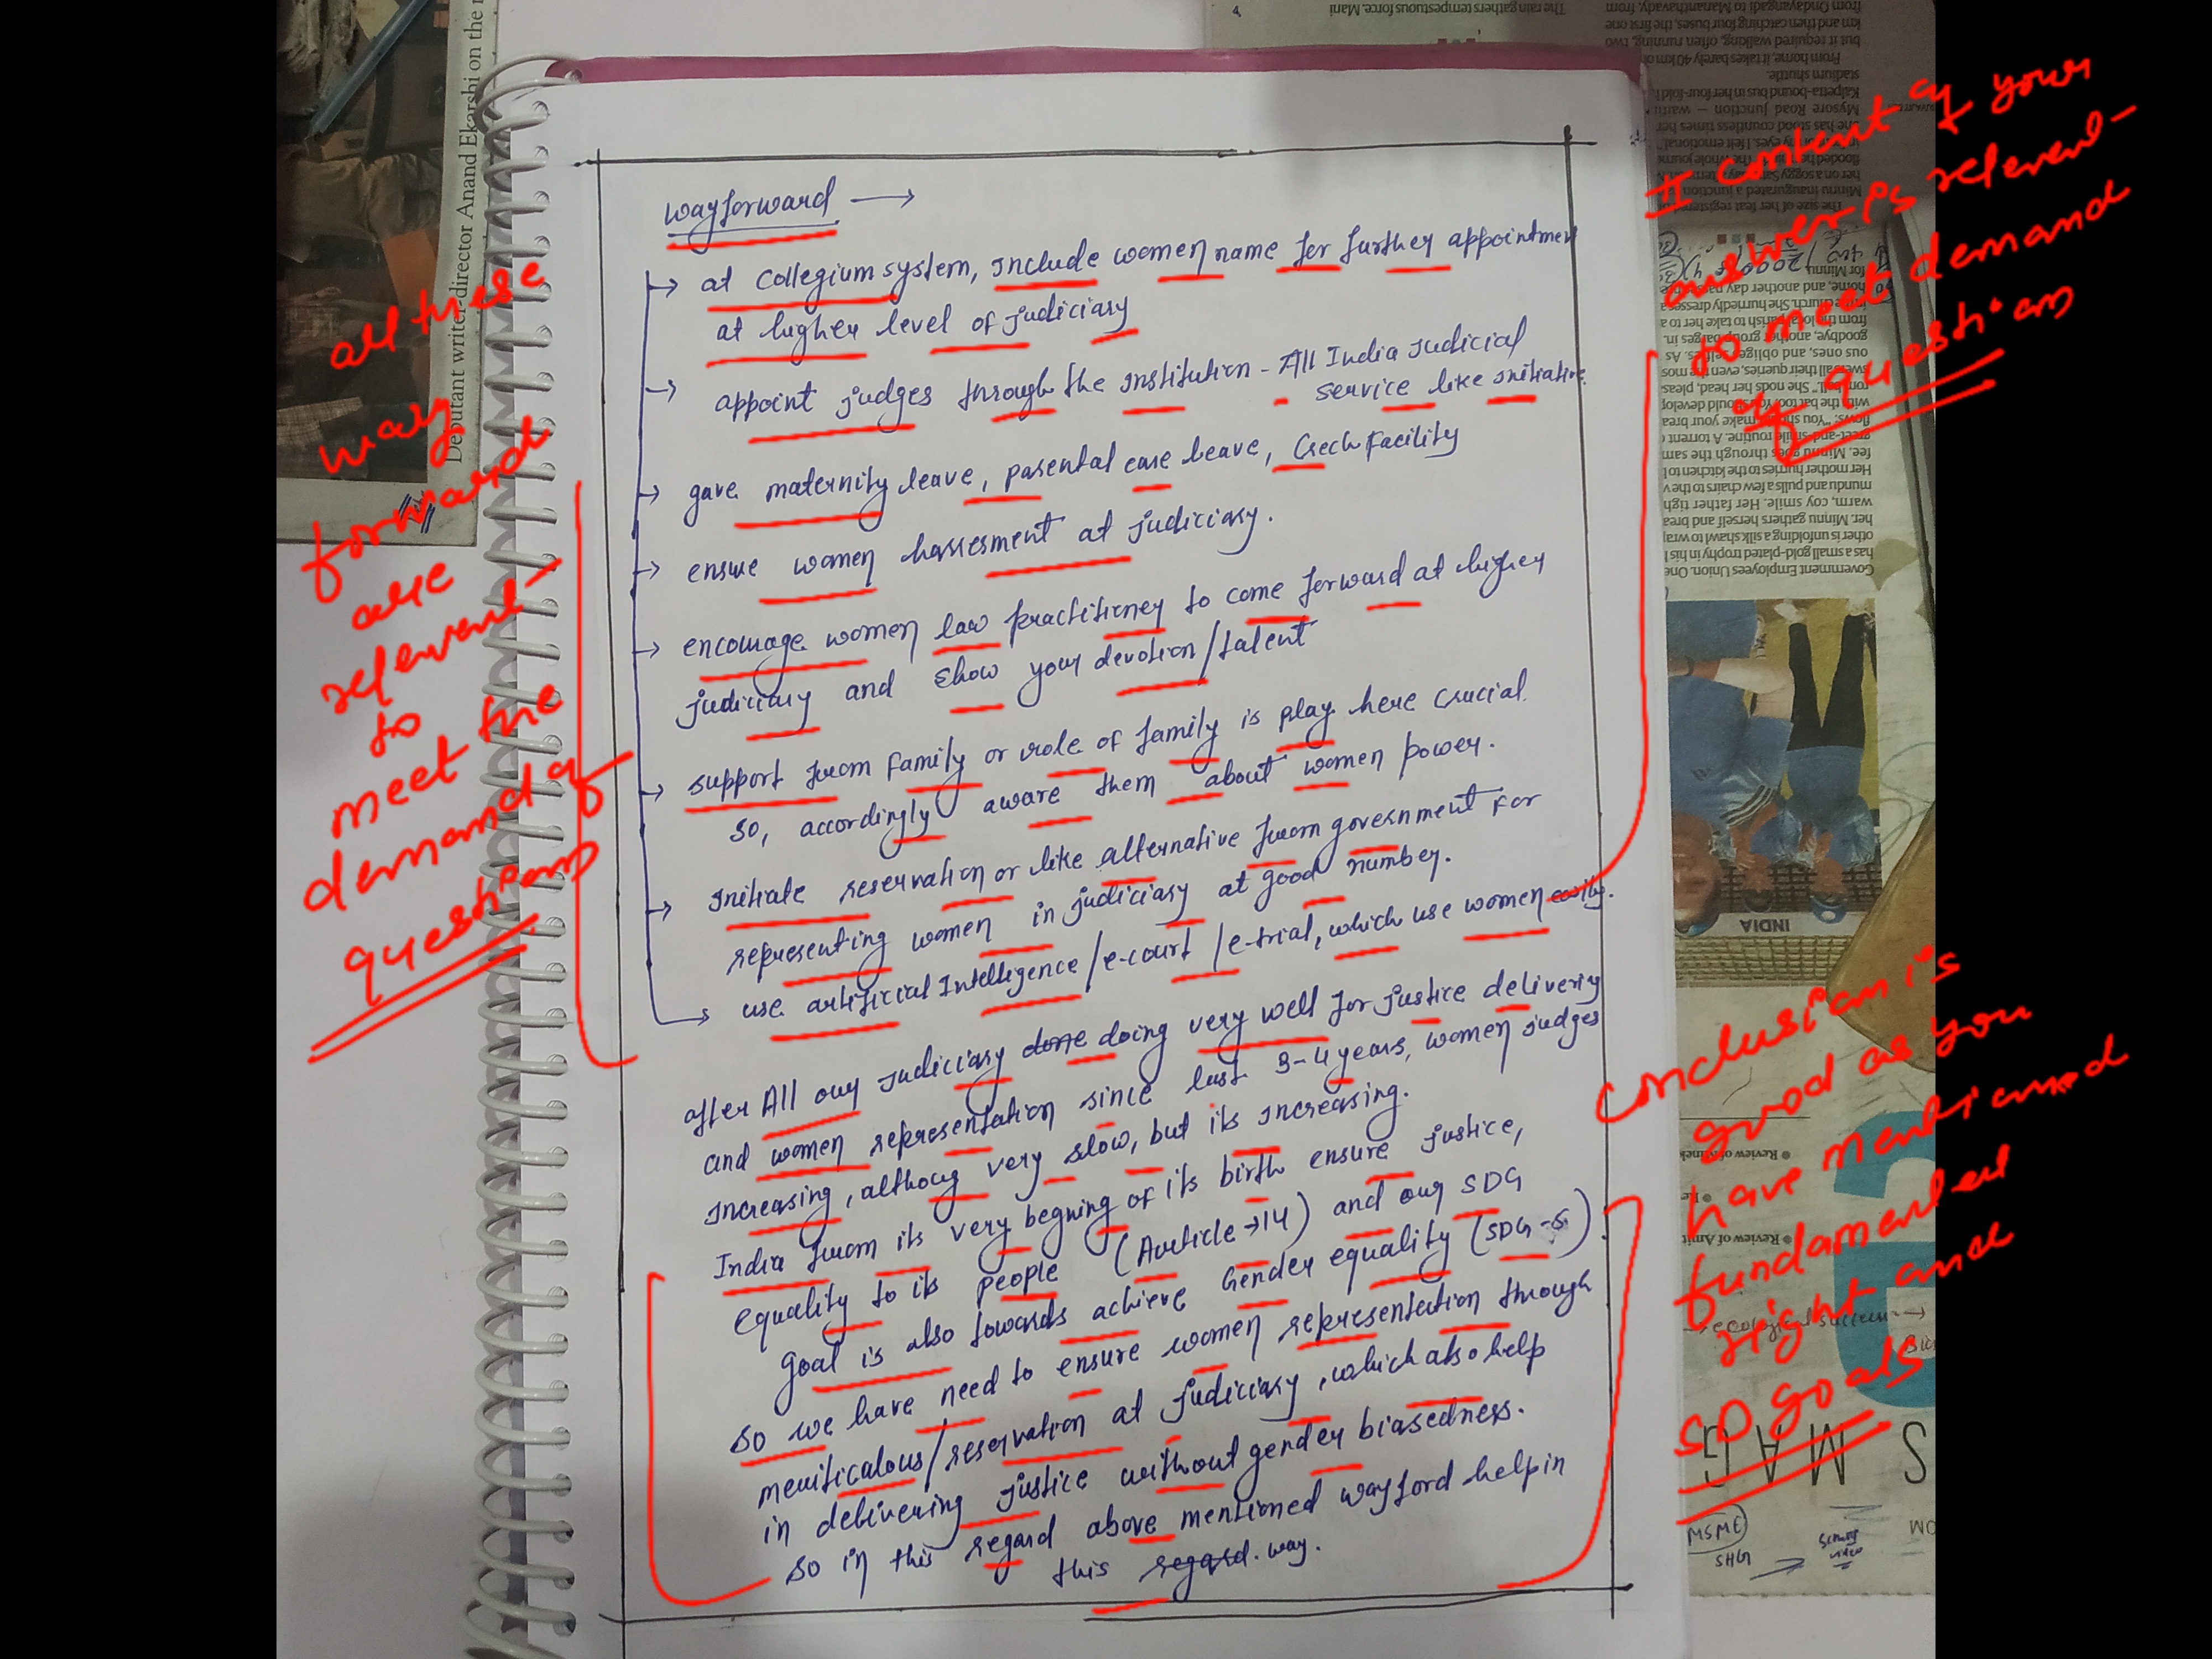 wayforward →
→ at collegium system, include women name for further appointment
at higher level of judiciary
→ appoint judges through the institution - All India Judicial
service like initiative.
→ gave maternity leave, parental care leave, Crech Facility
→ ensure women harresment at judiciary.
→ encourage women law practitioner to come forward at higher
judiciary and show your devotion/talent
→ support from family or role of family is play here crucial.
so, accordingly aware them about women power.
→ Initiate reservation or like alternative from government for
representing women in judiciary at good number.
→ use artificial Intelligence/e-court/e-trial, which use women easily.
after All our judiciary done doing very well for justice delivery
and women representation since last 3-4 years, women judges
increasing, althoug very slow, but its increasing.
India from its very begning of its birth ensure justice,
equality to its people (Article →14) and our SDG
goal is also towards achieve Gender equality (SDG-5).
so we have need to ensure women representation through
meriticalous/reservation at judiciary, which also help
in delivering justice without gender biasedness.
so in this regard above mentioned wayford help in
this regard. way.
all these
way
forward
are
relevent
to
meet the
demand of
question
# content of your
answer is relevent
to meet demand
of question
conclusion is
good as you
have mentioned
fundamental
right and
SD goals
Debutant writer-director Anand Ekarshi on the
The rain gathers tempestuous force. Mani
km and then catching four buses, the first one
but it required walking, often running, two
From home, it takes barely 40 km
stadium shuttle.
Mysore Road junction
has a small gold-plated trophy in his
Government Employees Union. One
INDIA
Review of
Review of Amit
ecological success →
S M A G
MSME
SHG